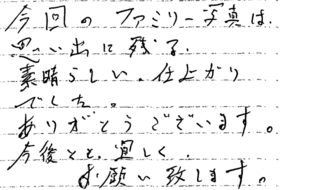 今回のファミリー写真は.
思い出に残る.
素晴らしい.仕上がり
でした。
ありがとうございます。
今後とも.宜しく.
お願い致します。